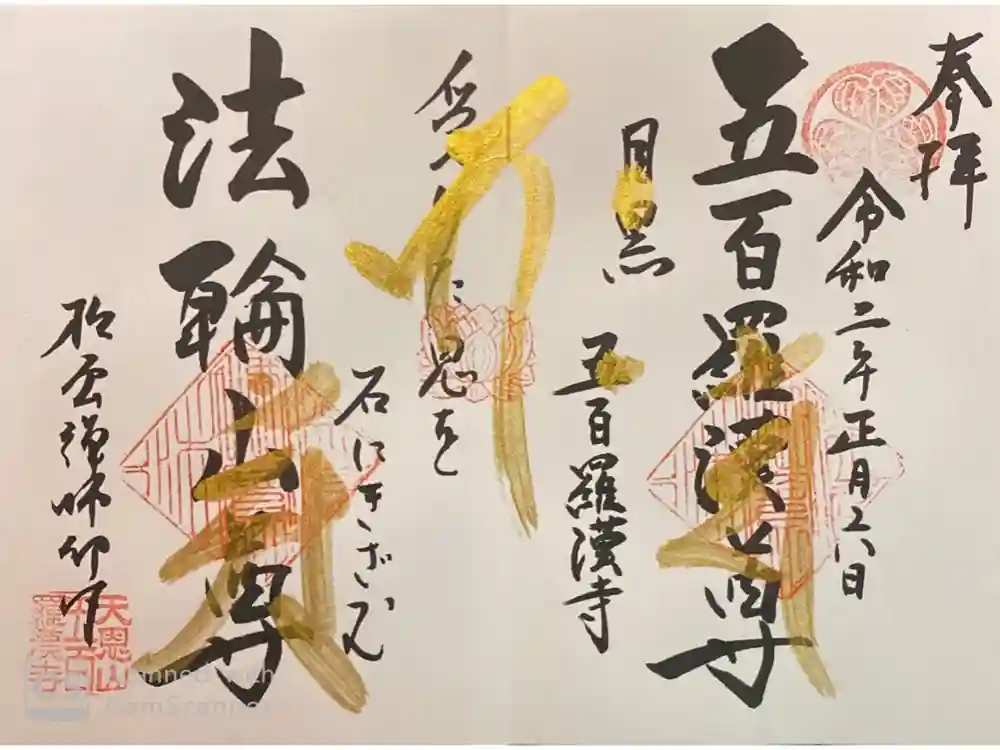 奉拝
令和二年正月六日
五百羅漢尊
目黒
五百羅漢寺
た恩を
石にきざむ
法輪山尊
松雲禅師仰作
天恩山
五百
羅漢寺
Scanned with
CamScanner